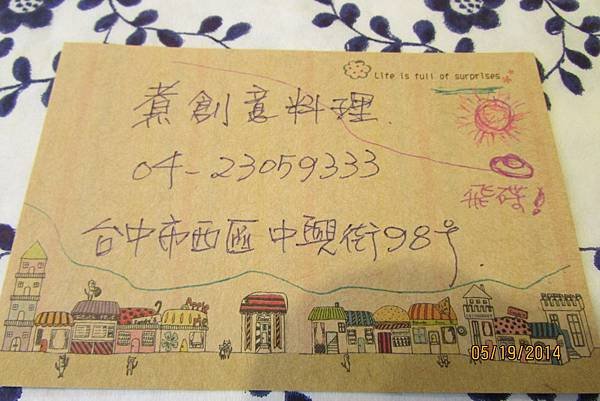 Life is full of surprises
煮創意料理.
04-23059333
飛碟!
台中市西區中興街98号.
Apple
05/19/2014